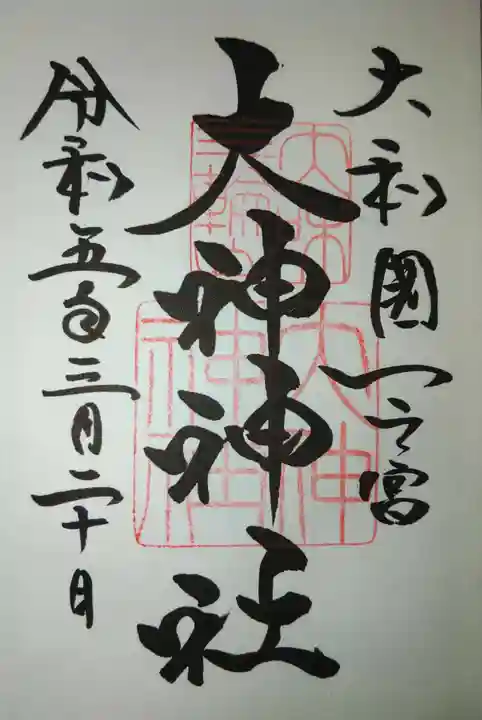 大和國一之宮
大神神社
令和五年三月二十日
大神神社